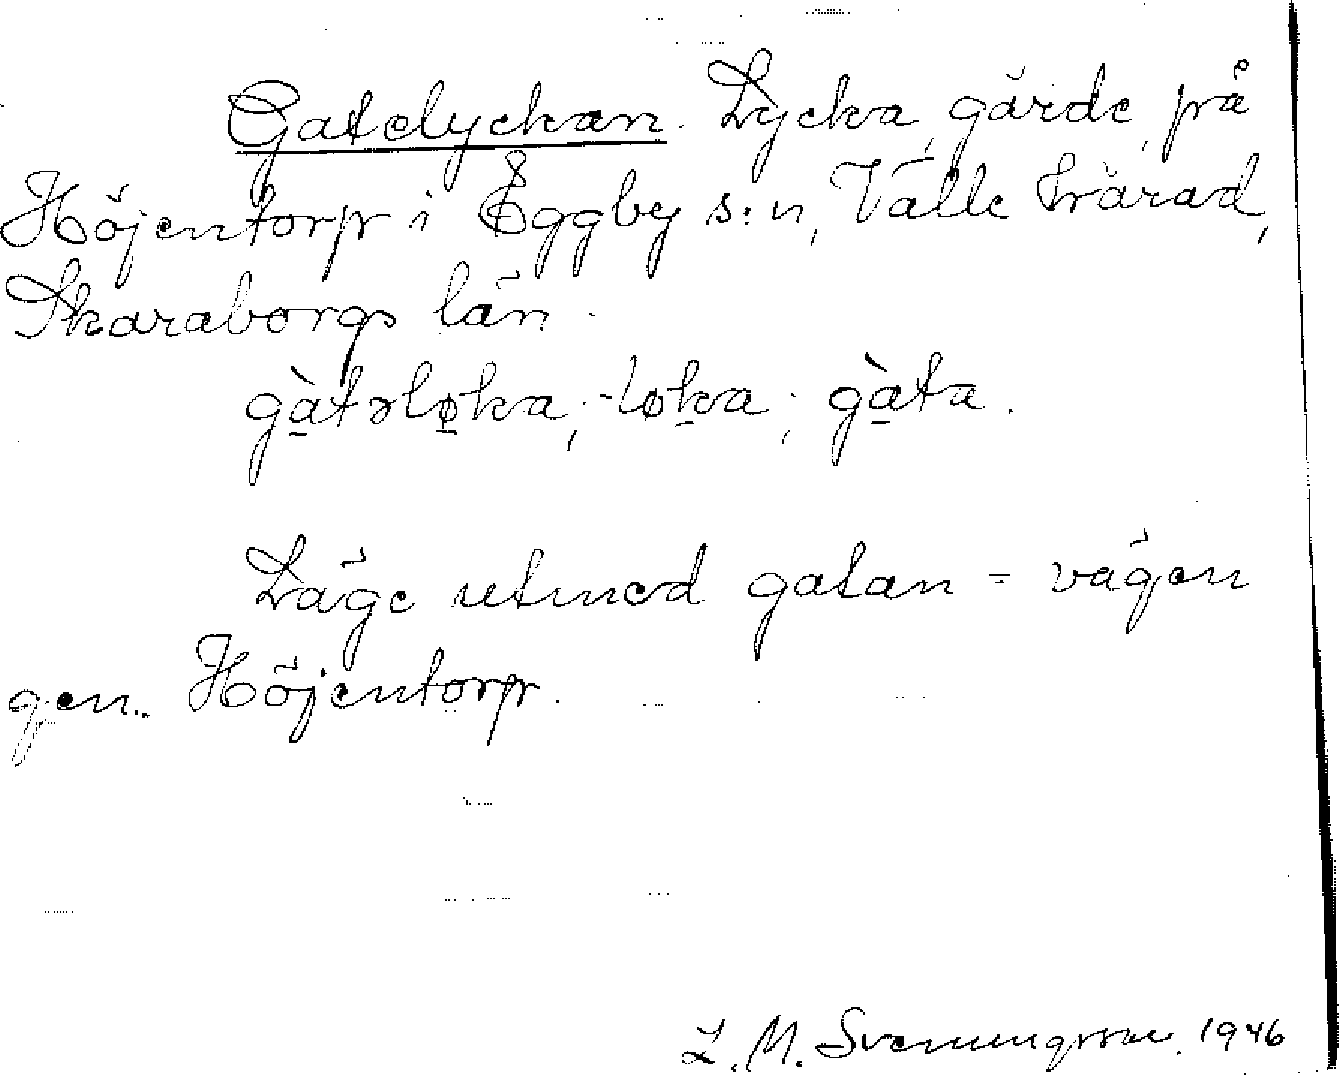 Gatelyckan. Lycka, gärde, på
Höjentorp i Eggby s:n, Valle härad,
Skaraborgs län.
gàtəlø̱ka, -loka; gàta.
Läge utmed gatan = vägen
gen. Höjentorp.
L. M. Svenungsson. 1946